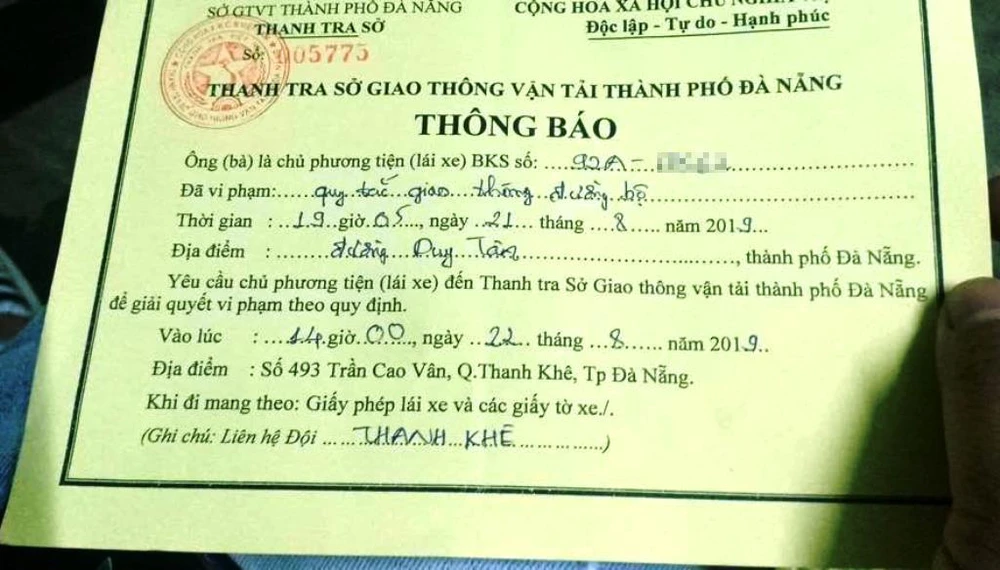 SỞ GTVT THÀNH PHỐ ĐÀ NẴNG
CỘNG HÒA XÃ HỘI CHỦ NGHĨA
THANH TRA SỞ
Độc lập - Tự do - Hạnh phúc
Số: 05775
THANH TRA SỞ GIAO THÔNG VẬN TẢI THÀNH PHỐ ĐÀ NẴNG
THÔNG BÁO
Ông (bà) là chủ phương tiện (lái xe) BKS số: 92A-
Đã vi phạm: quy tắc giao thông đường bộ
Thời gian : 19 giờ 05, ngày 21 tháng 8 năm 2019
Địa điểm : đường Duy Tân, thành phố Đà Nẵng.
Yêu cầu chủ phương tiện (lái xe) đến Thanh tra Sở Giao thông vận tải thành phố Đà Nẵng
để giải quyết vi phạm theo quy định.
Vào lúc : 14 giờ 00, ngày 22 tháng 8 năm 2019
Địa điểm : Số 493 Trần Cao Vân, Q.Thanh Khê, Tp Đà Nẵng.
Khi đi mang theo: Giấy phép lái xe và các giấy tờ xe./.
(Ghi chú: Liên hệ Đội THANH KHÊ)